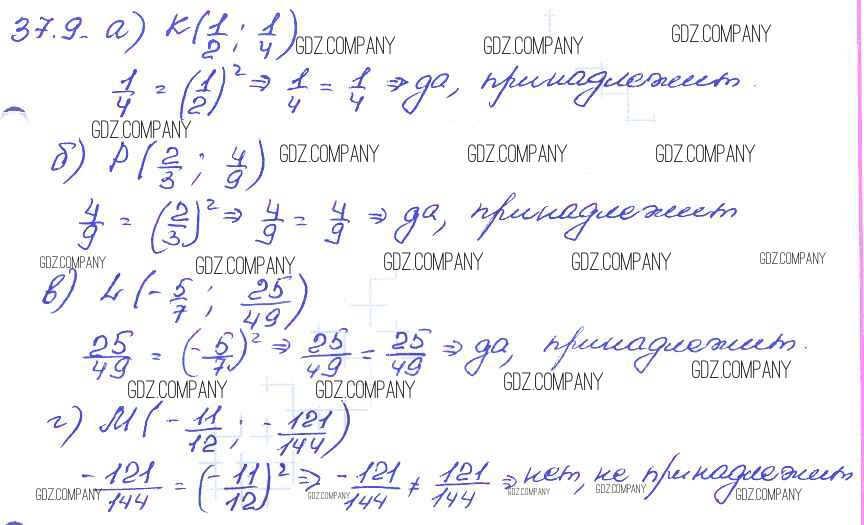 37.9. а) K(1/2; 1/4) GDZ.COMPANY GDZ.COMPANY GDZ.COMPANY
1/4 = (1/2)² ⇒ 1/4 = 1/4 ⇒ да, принадлежит.
GDZ.COMPANY
б) P(2/3; 4/9) GDZ.COMPANY GDZ.COMPANY GDZ.COMPANY
4/9 = (2/3)² ⇒ 4/9 = 4/9 ⇒ да, принадлежит
GDZ.COMPANY GDZ.COMPANY GDZ.COMPANY GDZ.COMPANY GDZ.COMPANY
в) L(-5/7; 25/49)
25/49 = (-5/7)² ⇒ 25/49 = 25/49 ⇒ да, принадлежит.
GDZ.COMPANY GDZ.COMPANY GDZ.COMPANY GDZ.COMPANY
г) M(-11/12; -121/144)
-121/144 = (-11/12)² ⇒ -121/144 ≠ 121/144 ⇒ нет, не принадлежит
GDZ.COMPANY GDZ.COMPANY GDZ.COMPANY GDZ.COMPANY GDZ.COMPANY